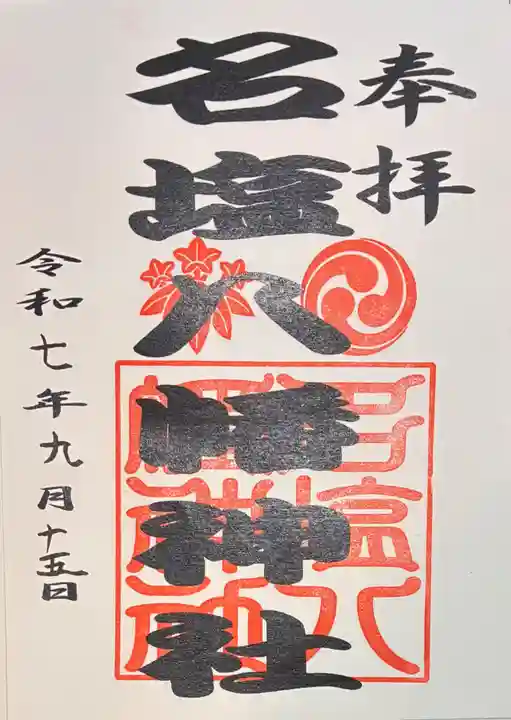 奉拝
名塩八幡神社
名塩八幡神社
令和七年九月十五日